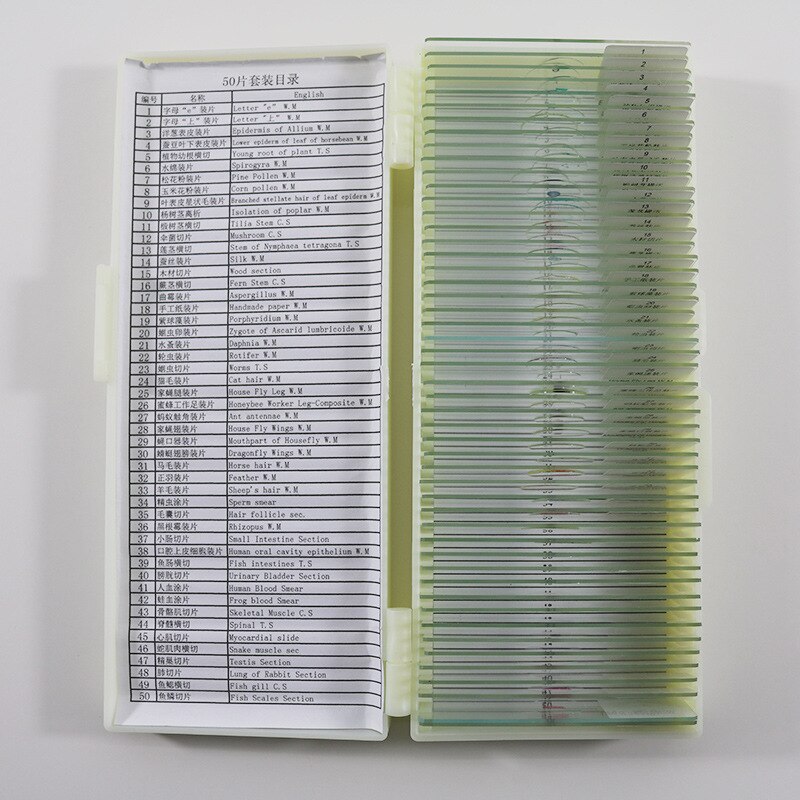 50片套装目录
编号 名称 English
1 字母“e”装片 Letter "e" W.M
2 字母“上”装片 Letter "上" W.M
3 洋葱表皮装片 Epidermis of Allium W.M
4 蚕豆叶下表皮装片 Lower epiderm of leaf of horsebean W.M
5 植物幼根横切 Young root of plant T.S
6 水绵装片 Spirogyra W.M
7 松花粉装片 Pine Pollen W.M
8 玉米花粉装片 Corn pollen W.M
9 叶表皮星状毛装片 Branched stellate hair of leaf epiderm W.M
10 杨树茎离析 Isolation of poplar W.M
11 椴树茎横切 Tilia Stem C.S
12 伞菌切片 Mushroom C.S
13 莲茎横切 Stem of Nymphaea tetragona T.S
14 蚕丝装片 Silk W.M
15 木材切片 Wood section
16 蕨茎横切 Fern Stem C.S
17 曲霉装片 Asporgillus W.M
18 手工纸装片 Handmade paper W.M
19 紫球藻装片 Porphyridium W.M
20 蛔虫卵装片 Zygote of Ascarid lumbricoide W.M
21 水蚤装片 Daphnia W.M
22 轮虫装片 Rotifer W.M
23 蛔虫切片 Worms T.S
24 猫毛装片 Cat hair W.M
25 家蝇腿装片 House Fly Leg W.M
26 蜜蜂工作足装片 Honeybee Worker Leg-Composite W.M
27 蚂蚁触角装片 Ant antennae W.M
28 家蝇翅装片 House Fly Wings W.M
29 蝇口器装片 Mouthpart of Housefly W.M
30 蜻蜓翅膀装片 Dragonfly Wings W.M
31 马毛装片 Horse hair W.M
32 正羽装片 Feather W.M
33 羊毛装片 Sheep's hair W.M
34 精虫涂片 Sperm smear
35 毛囊切片 Hair follicle sec.
36 黑根霉装片 Rhizopus W.M
37 小肠切片 Small Intestine Section
38 口腔上皮细胞装片 Human oral cavity epithelium W.M
39 鱼肠横切 Fish intestines T.S
40 膀胱切片 Urinary Bladder Section
41 人血涂片 Human Blood Smear
42 蛙血涂片 Frog blood Smear
43 骨骼肌切片 Skeletal Muscle C.S
44 脊髓横切 Spinal T.S
45 心肌切片 Myocardial slide
46 蛇肌肉横切 Snake muscle sec
47 精巢切片 Testis Section
48 肺切片 Lung of Rabbit Section
49 鱼鳃横切 Fish gill C.S
50 鱼鳞切片 Fish Scales Section
1
2
3
4
5
6
7
8
9
10
11
12
13
14
15